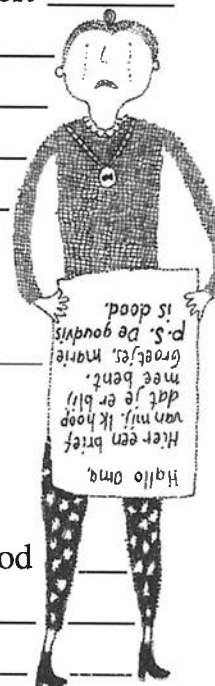 Hallo Oma,
Hier een brief
van mij. Ik hoop
dat je er blij
mee bent.
Groetjes, marie
P.S. De goudvis
is dood.
od